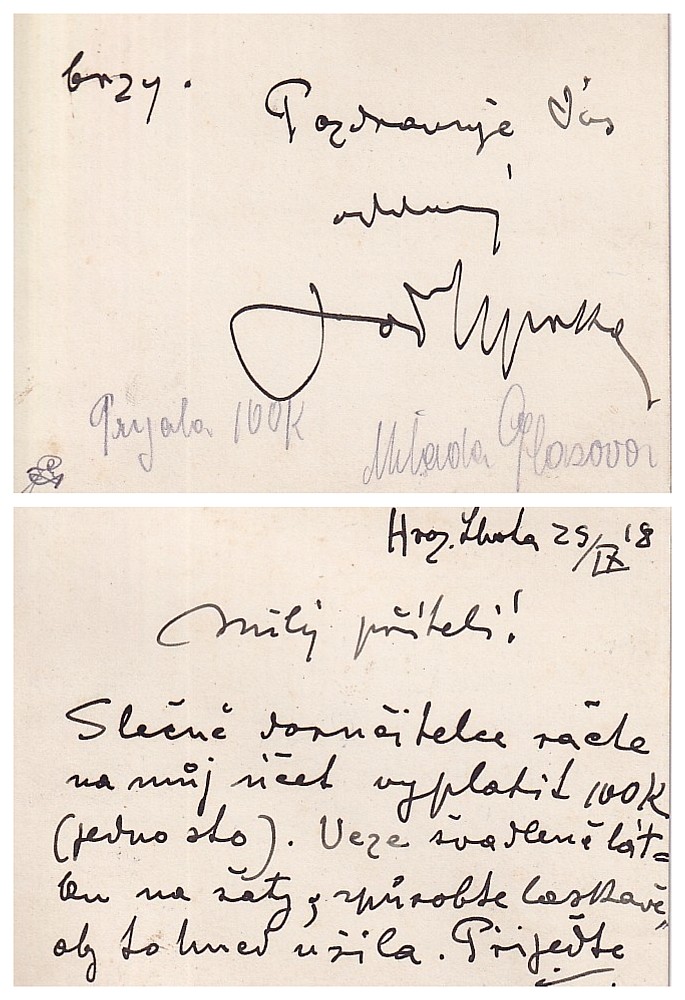 brzy.
Pozdravuje Vás
oddaný
Jož Uprka
Pryjala 100K
Mlada Glasova
Hroz. Lhota 25/IX '18
Milý příteli!
Slečně doručitelce račte
na můj účet vyplatit 100K
(jedno sto). Veze švadleně lát=
ku na šaty; způsobte laskavě,
aby to hned ušila. Přijeďte